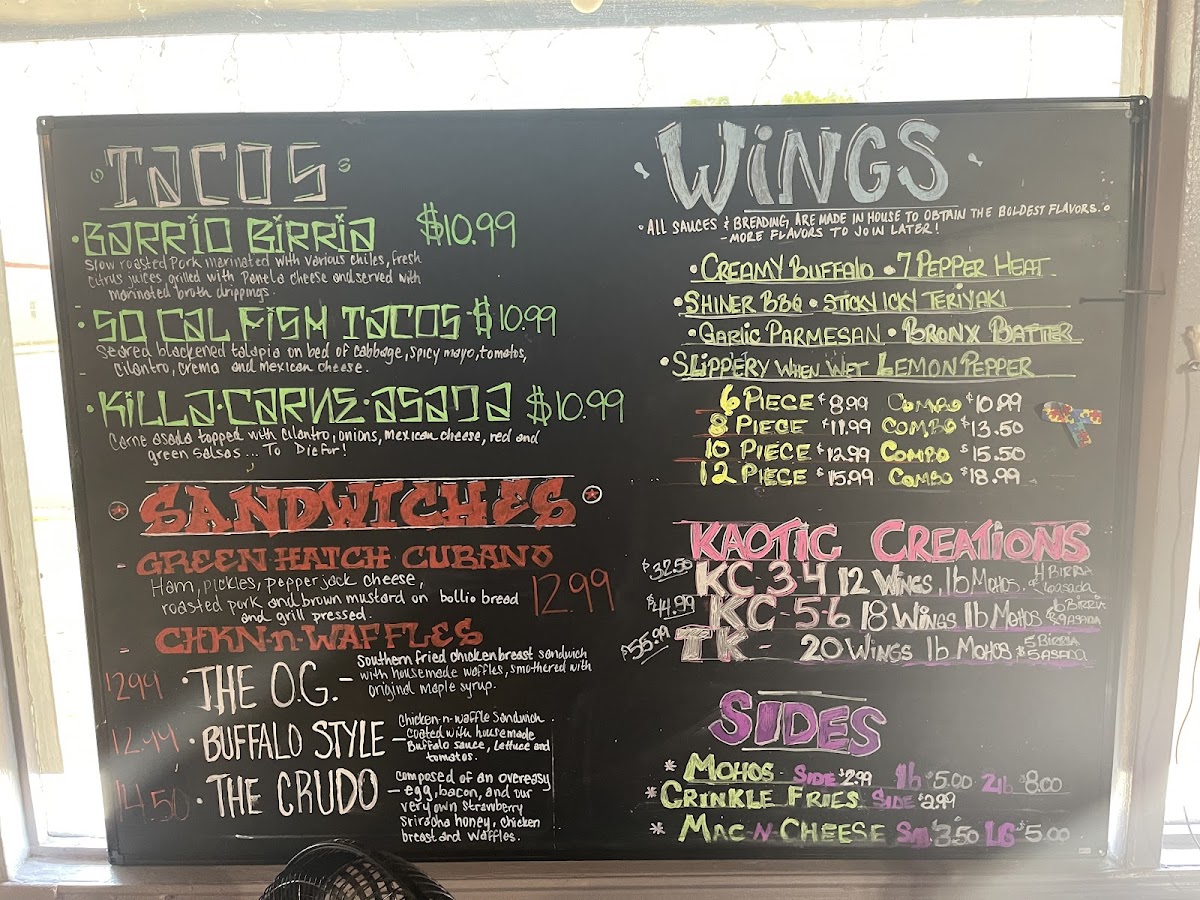 TACOS
BARRIO BIRRIA $10.99
Slow roasted Pork marinated with various chiles, fresh
citrus juices, grilled with Panela cheese and served with
marinated broth drippings.
SO CAL FISH TACOS $10.99
Seared blackened talapia on bed of cabbage, spicy mayo, tomatoes,
cilantro, crema and mexican cheese.
KILLA·CARNE·ASADA $10.99
Carne asada topped with cilantro, onions, mexican cheese, red and
green salsas... To Die For!
SANDWICHES
- GREEN HATCH CUBANO
Ham, pickles, pepper jack cheese,
roasted pork and brown mustard on bollio bread 12.99
and grill pressed.
- CHKN-n-WAFFLES
12.99 · THE O.G. - Southern fried chicken breast sandwich
with housemade waffles, smothered with
original maple syrup.
12.99 · BUFFALO STYLE - Chicken-n-waffle sandwich
coated with housemade
Buffalo sauce, lettuce and
tomatos.
14.50 · THE CRUDO - composed of an overeasy
egg, bacon, and our
very own strawberry
Sriracha honey, chicken
breast and waffles.
WiNGS
ALL SAUCES & BREADING ARE MADE IN HOUSE TO OBTAIN THE BOLDEST FLAVORS.
- MORE FLAVORS TO JOIN LATER!
• CREAMY BUFFALO • 7 PEPPER HEAT
• SHINER BBQ • STICKY ICKY TERIYAKI
• GARLIC PARMESAN • BRONX BATTER
• SLIPPERY WHEN WET LEMON PEPPER
6 PIECE $8.99 COMBO $10.99
8 PIECE $11.99 COMBO $13.50
10 PIECE $12.99 COMBO $15.50
12 PIECE $15.99 COMBO $18.99
KAOTIC CREATIONS
$32.50 KC-3-4 12 WINGS 1lb MOHOS 4 BIRRIA
$44.99 KC-5-6 18 WINGS 1lb MOHOS
$55.99 TK - 20 WINGS 1lb MOHOS 5 BIRRIA
5 ASADA
SIDES
* MOHOS SIDE $2.99 1lb $5.00 2lb $8.00
* CRINKLE FRIES SIDE $2.99
* MAC-N-CHEESE Sm. 3.50 LG $5.00